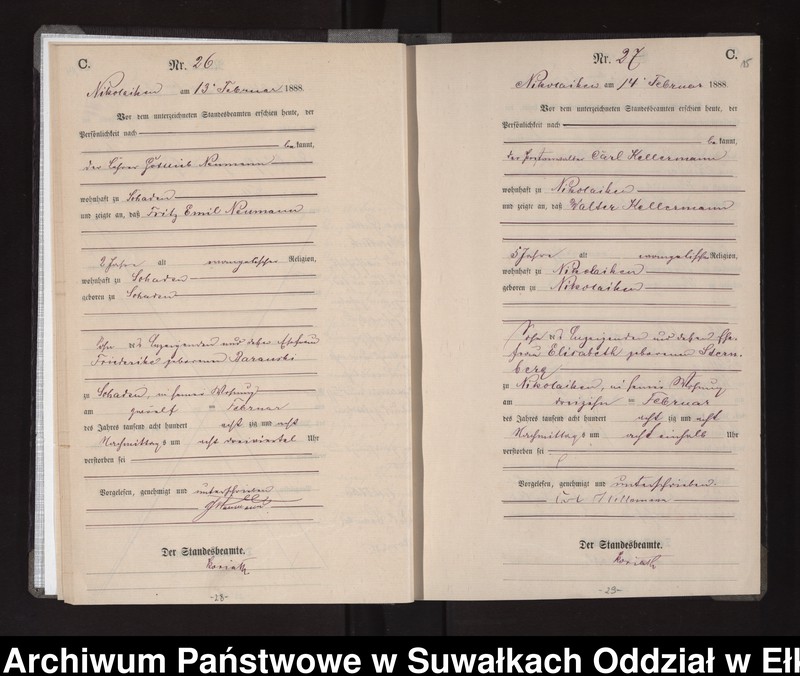 C.
Nr. 26
Nikolaiken am 13. Februar 1888.
Vor dem unterzeichneten Standesbeamten erschien heute, der
Persönlichkeit nach
bekannt,
der Lehrer Gottlieb Neumann
wohnhaft zu Schaden
und zeigte an, daß Fritz Emil Neumann
2 Jahre alt evangelischer Religion,
wohnhaft zu Schaden
geboren zu Schaden
Sohn des Anzeigenden und dessen Ehefrau
Friederike geborenen
zu Schaden, in seiner Wohnung
am zwölf ten Februar
des Jahres tausend acht hundert acht zig und acht
Nachmittags um acht dreiviertel Uhr
verstorben sei
Vorgelesen, genehmigt und unterschrieben
G Neumann.
Der Standesbeamte.
-28-
Nr. 27
C.
Nikolaiken am 14. Februar 1888.
Vor dem unterzeichneten Standesbeamten erschien heute, der
Persönlichkeit nach
bekannt,
der Carl Kellermann
wohnhaft zu Nikolaiken
und zeigte an, daß Walter Kellermann
5 Jahre alt evangelischer Religion,
wohnhaft zu Nikolaiken
geboren zu Nikolaiken
Sohn des Anzeigenden und dessen Ehe-
frau Elisabeth geborenen Stern-
berg
zu Nikolaiken, in seiner Wohnung
am dreizehn ten Februar
des Jahres tausend acht hundert acht zig und acht
Nachmittags um acht einhalb Uhr
verstorben sei
Vorgelesen, genehmigt und unterschrieben.
Carl Kellermann
Der Standesbeamte.
-29-
Archiwum Państwowe w Suwałkach Oddział w Ełk